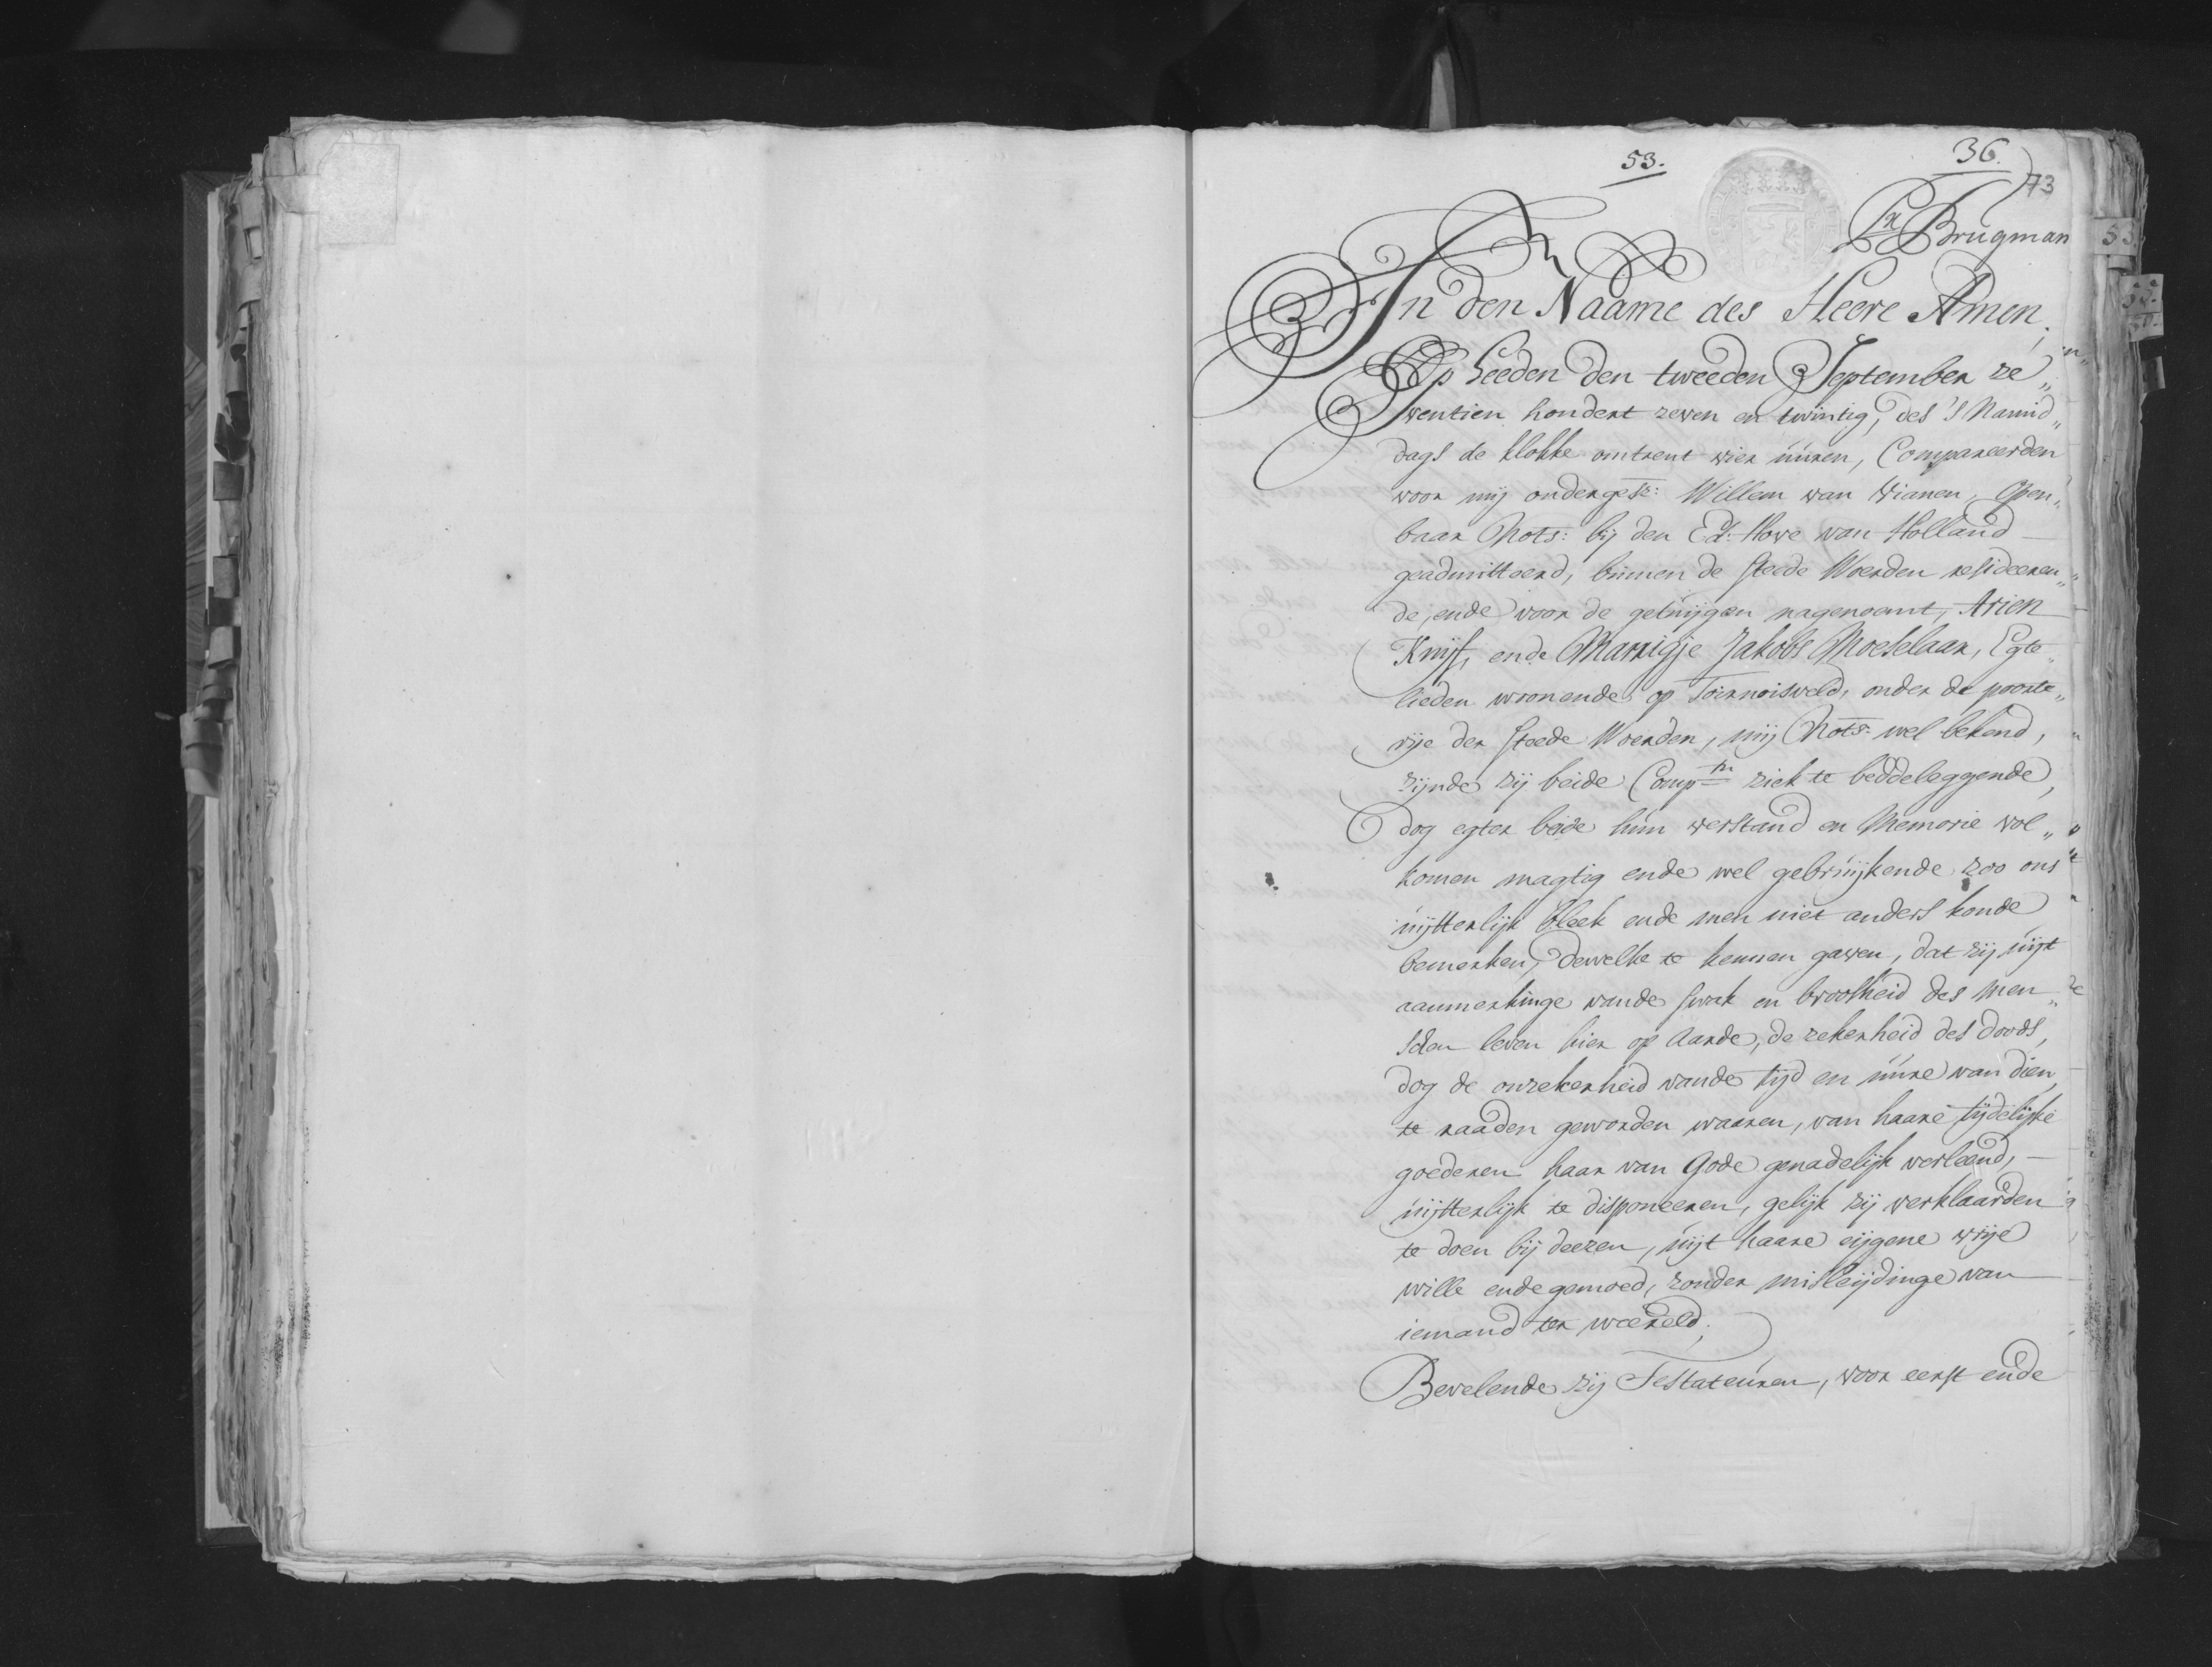 53.
36.
73
Brugman
53
In den Naame des Heere Amen,
Op heeden den tweeden September ze„
ventien hondert zeven en twintig, des 's Namid„
dags de klokke omtrent vier uúren, Compareerden
voor mij ondergesz: Willem van Vianen, Open„
baar Nots: bij den Ed: Hove van Holland
geadmitteerd, binnen de steede Woerden resideeren„
de, ende voor de getuijgen nagenoemt, Arien
Knijf, ende Marrigje Jakobs Moeselaar, Egte„
lieden woonende op Toernoisveld, onder de poorte„
rije der steede Woerden, mij Nots: wel bekend,
zijnde zij beide Comptn ziek te bedde leggende,
dog egter beide hún verstand en Memorie vol„
komen magtig ende wel gebrúijkende zoo ons
úijtterlijk bleek ende men niet anders konde
bemerken, dewelke te kennen gaven, dat zij úijt
aanmerkinge vande swak en broosheid des men„
schen leven hier op Aarde, de zekerheid des doods,
dog de onzekerheid vande tijd en úúre van dien,
te raaden geworden waaren, van haare tijdelijke
goederen haar van Gode genadelijk verleend, —
úijtterlijk te disponeeren, gelijk zij verklaarden
te doen bij deezen, úijt haare eijgene vrije
wille ende gemoed, zonder misleijdinge van
iemand ter weereld;
Bevelende zij Testateúren, voor eerst ende